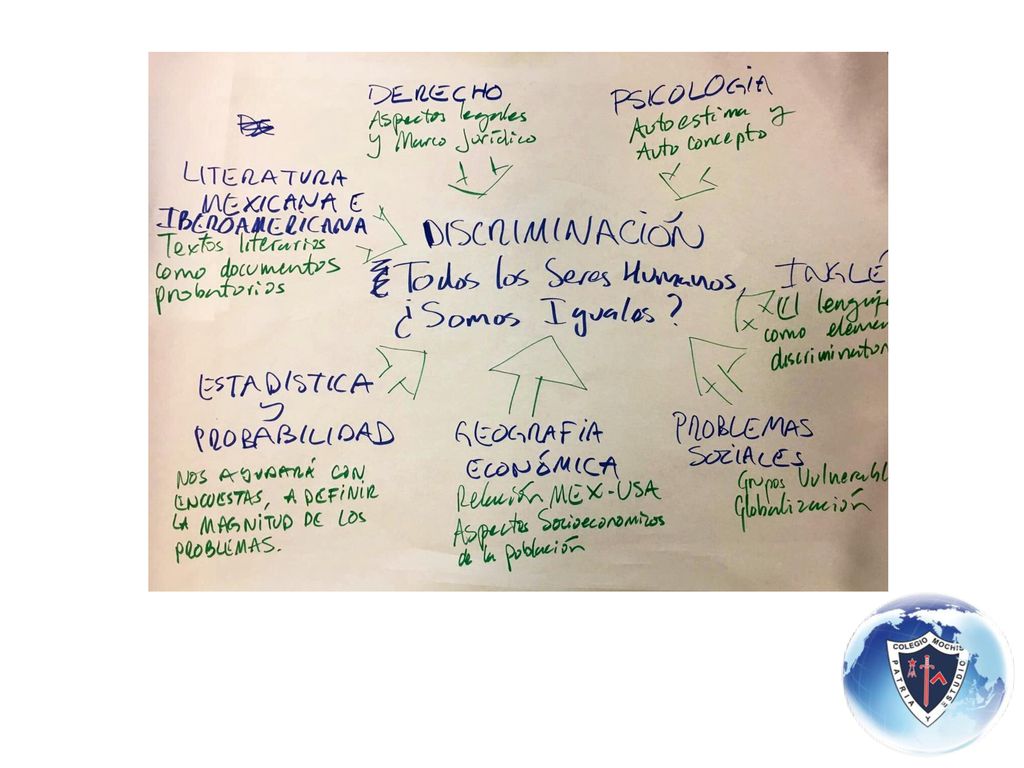 DERECHO
Aspectos legales
y Marco Jurídico
PSICOLOGIA
Autoestima y
Auto concepto
LITERATURA
MEXICANA E
IBEROAMERICANA
Textos literarios
como documentos
probatorios
DISCRIMINACIÓN
Todos los Seres Humanos,
¿Somos Iguales?
INGLÉ
El lenguaje
como elemen
discriminator
ESTADISTICA
y
PROBABILIDAD
NOS AYUDARÁ CON
ENCUESTAS, A DEFINIR
LA MAGNITUD DE LOS
PROBLEMAS.
GEOGRAFIA
ECONÓMICA
Relación MEX-USA
Aspectos Socioeconomicos
de la población
PROBLEMAS
SOCIALES
Grupos Vulnerabl
Globalización
COLEGIO MOCHIS
PATRIA Y ESTUDIO